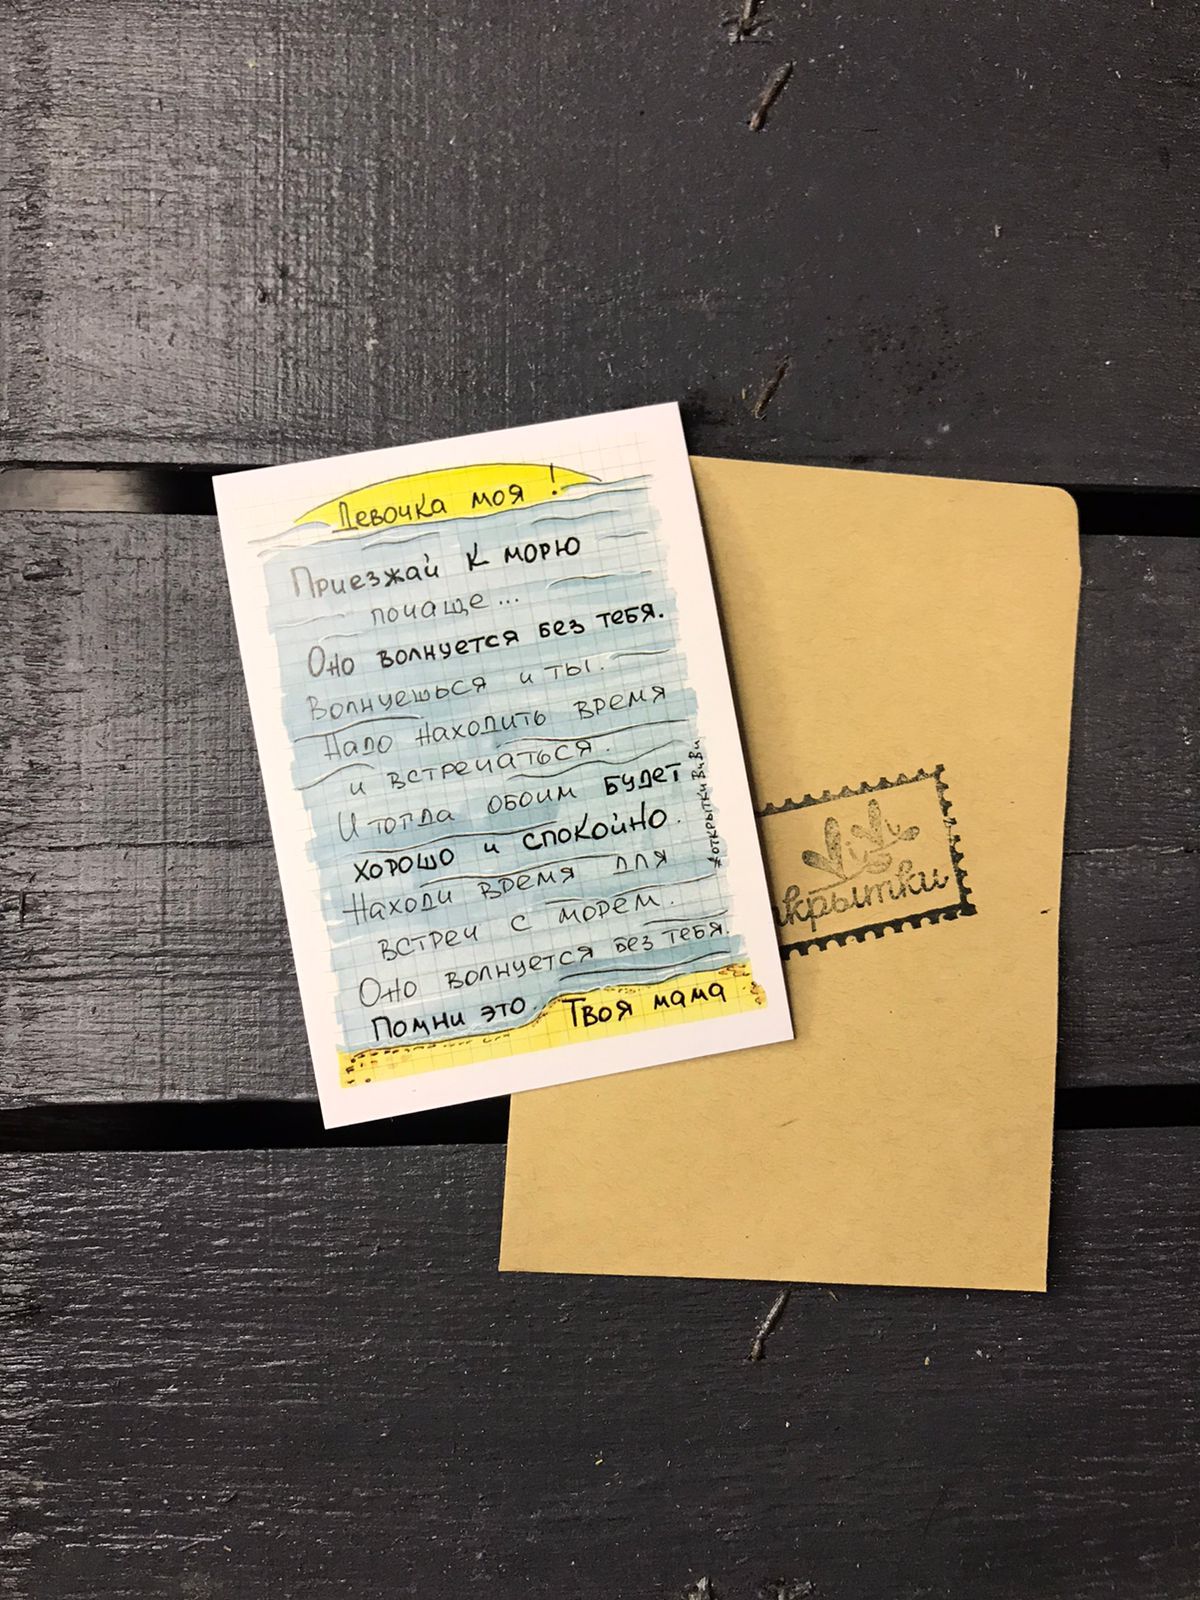 Девочка моя!
Приезжай к морю
почаще...
Оно волнуется без тебя.
Волнуешься и ты.
Надо находить время
и встречаться.
И тогда обоим будет
хорошо и спокойно.
Находи время для
встреч с морем.
Оно волнуется без тебя.
Помни это. Твоя мама
#открыткиВиВи